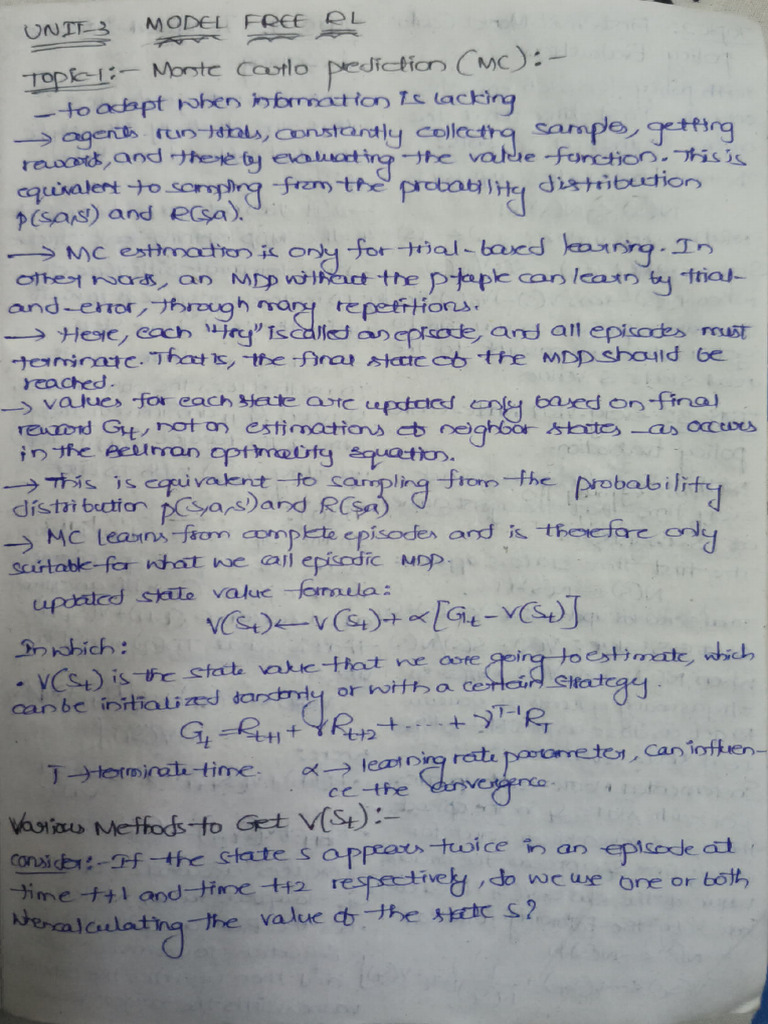 UNIT-3 MODEL FREE RL
Topic-1:- Monte Carlo prediction (MC):-
- to adapt when information is lacking
→ agents run trials, constantly collecting samples, getting
rewards, and thereby evaluating the value function. This is
equivalent to sampling from the probability distribution
p(s,a,s') and R(s,a).
→ MC estimation is only for trial-based learning. In
other words, an MDP without the P-tuple can learn by trial-
and-error, through many repetitions.
→ Here, each "try" is called an episode, and all episodes must
terminate. That is, the final state of the MDP should be
reached.
→ values for each state are updated only based on final
reward Gt, not on estimations of neighbor states - as occurs
in the Bellman optimality equation.
→ This is equivalent to sampling from the probability
distribution p(s,a,s') and R(s,a)
→ MC learns from complete episodes and is therefore only
suitable for what we call episodic MDP.
updated state value formula:
V(St) ← V(St) + α[Gt - V(St)]
In which:
• V(St) is the state value that we are going to estimate, which
can be initialized randomly or with a certain strategy.
Gt = Rt+1 + γRt+2 + ... + γ^T-1 RT
T → terminate time. α → learning rate parameter, can influen-
ce the convergence.
Various Methods to Get V(St):-
consider:- If the state s appears twice in an episode at
time t+1 and time t+2 respectively, do we use one or both
when calculating the value of the state s?